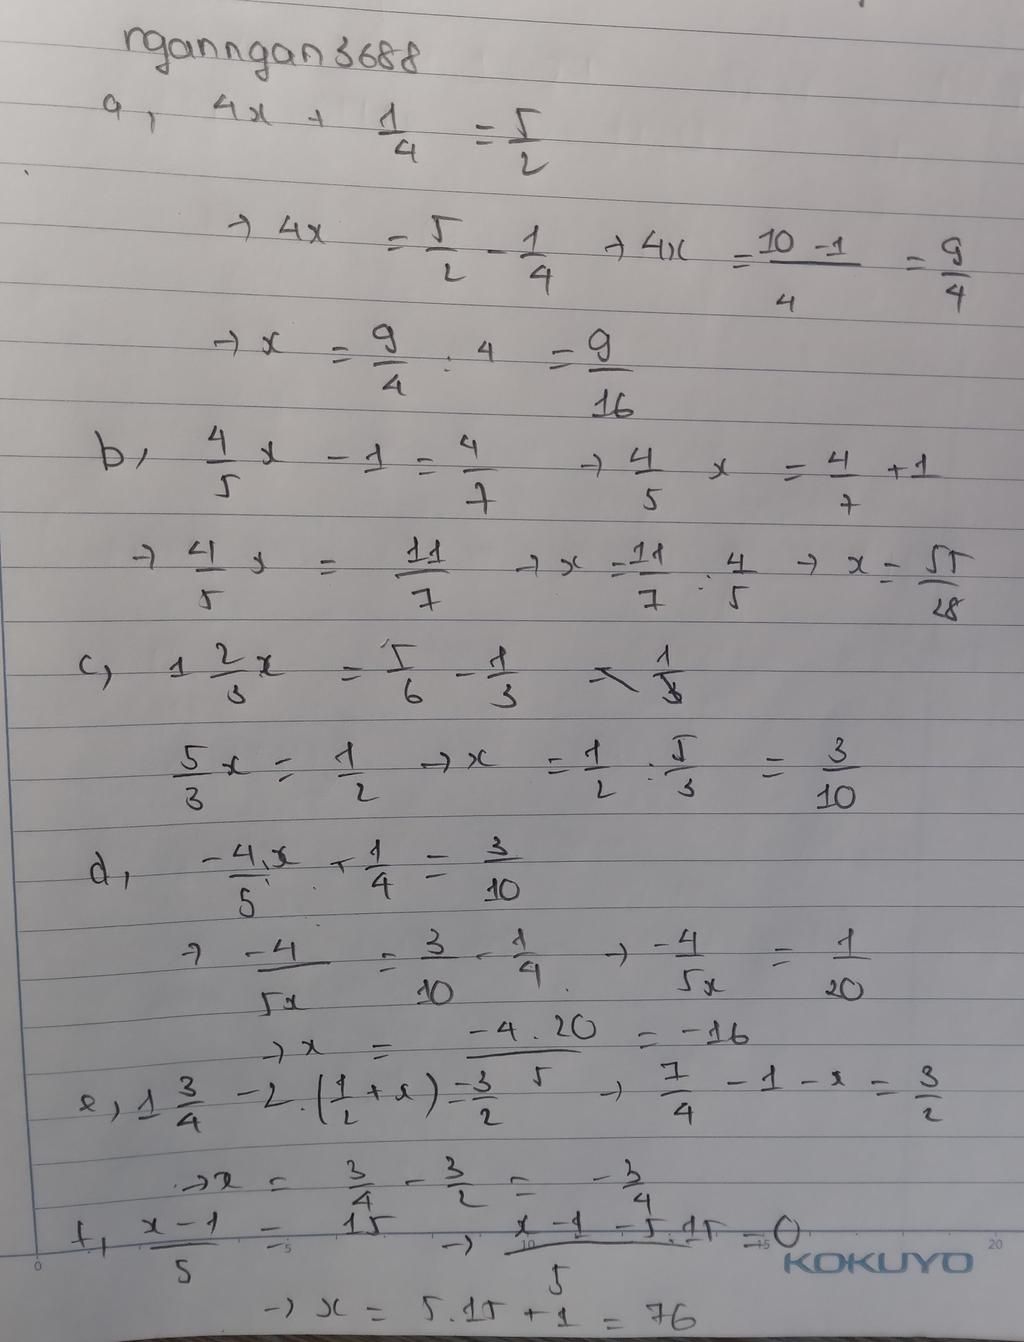 nganngan3688
a, 4x + 1/4 = 5/2
→ 4x = 5/2 - 1/4 → 4x = (10 - 1)/4 = 9/4
→ x = 9/4 : 4 = 9/16
b, 4/5 x - 1 = 4/7 → 4/5 x = 4/7 + 1
→ 4/5 x = 11/7 → x = 11/7 : 4/5 → x = 55/28
c, 1 2/3 x = 5/6 - 1/3
5/3 x = 1/2 → x = 1/2 : 5/3 = 3/10
d, -4.x/5 + 1/4 = 3/10
→ -4/5x = 3/10 - 1/4 → -4/5x = 1/20
→ x = -4 . 20/5 = -16
e, 1 3/4 - 2.(1/2 + x) = 3/2 → 7/4 - 1 - x = 3/2
→ x = 3/4 - 3/2 = -3/4
f, (x - 1)/5 = 15 → (x - 1 - 5.15)/5 = 0
0 5 10 15 20
KOKUYO
→ x = 5.15 + 1 = 76